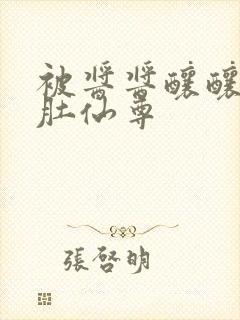 被醬醬釀釀
肚仙尊
張啓明